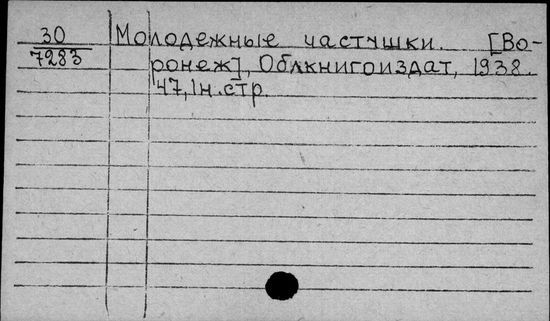 30 Молодежные частушки. [Во-
7283 ронеж], Облкнигоиздат, 1938.
47, 1н. стр.